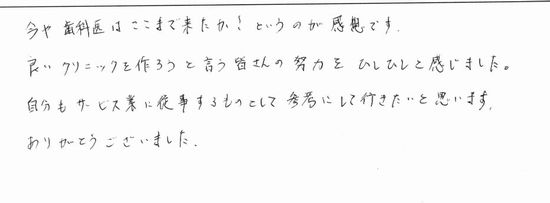 今や歯科医はここまで来たか！というのが感想です.
良いクリニックを作ろうと言う皆さんの努力をひしひしと感じました。
自分もサービス業に従事するものとして参考にして行きたいと思います.
ありがとうございました.